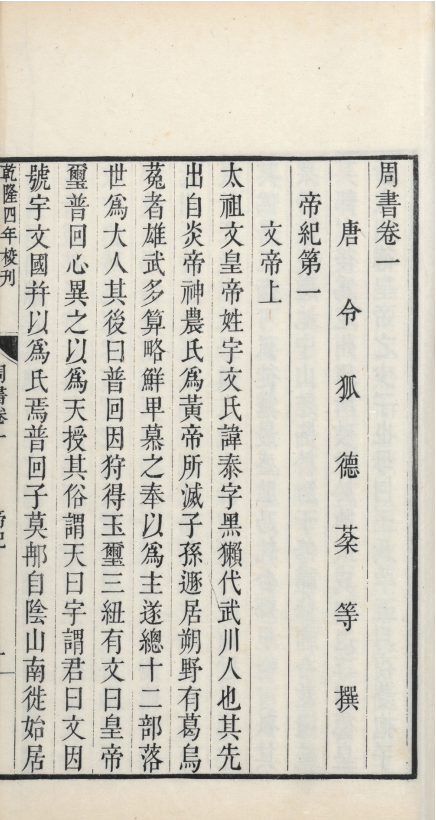 周書卷一
唐令狐德棻等撰
帝紀第一
文帝上
太祖文皇帝姓宇文氏諱泰字黑獺代武川人也其先
出自炎帝神農氏爲黃帝所滅子孫遯居朔野有葛烏
菟者雄武多算略鮮卑慕之奉以爲主遂總十二部落
世爲大人其後曰普回因狩得玉璽三紐有文曰皇帝
璽普回心異之以爲天授其俗謂天曰宇謂君曰文因
號宇文國幷以爲氏焉普回子莫那自陰山南徙始居
乾隆四年校刊
周書卷一
帝紀
一